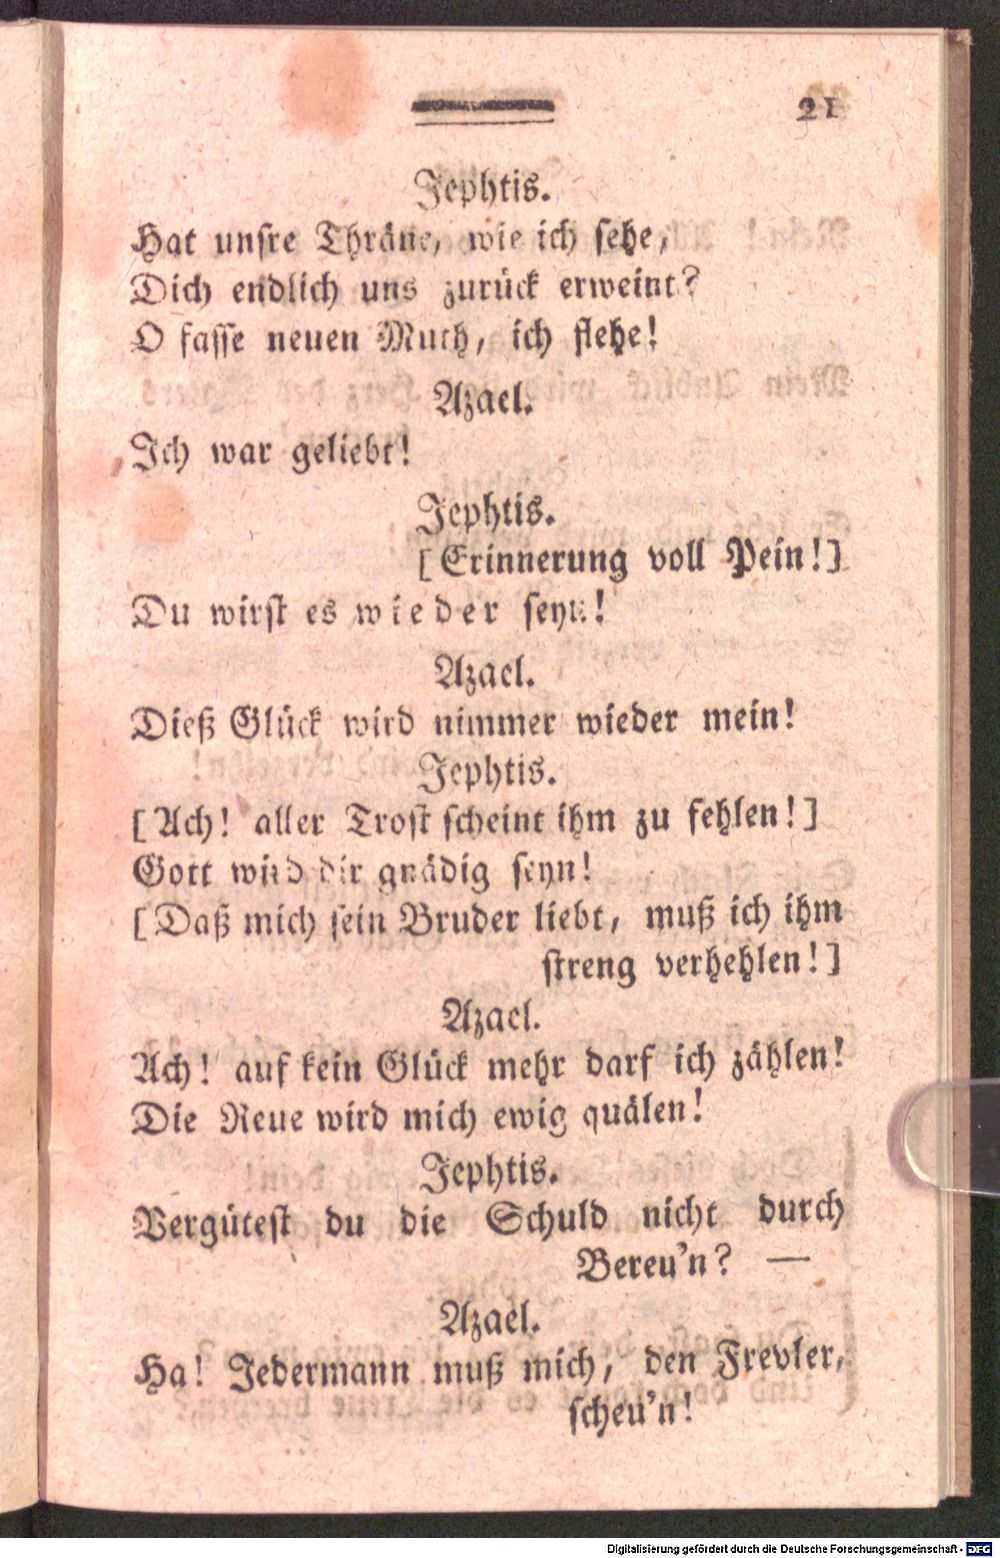 21
Jephtis.
Hat unsre Thräne, wie ich sehe,
Dich endlich uns zurück erweint?
O fasse neuen Muth, ich flehe!
Azael.
Ich war geliebt!
Jephtis.
[Erinnerung voll Pein!]
Du wirst es wieder seyn!
Azael.
Dieß Glück wird nimmer wieder mein!
Jephtis.
[Ach! aller Trost scheint ihm zu fehlen!]
Gott wird dir gnädig seyn!
[Daß mich sein Bruder liebt, muß ich ihm
streng verhehlen!]
Azael.
Ach! auf kein Glück mehr darf ich zählen!
Die Reue wird mich ewig quälen!
Jephtis.
Vergütest du die Schuld nicht durch
Bereu'n? —
Azael.
Ha! Jedermann muß mich, den Frevler,
scheu'n!
Digitalisierung gefördert durch die Deutsche Forschungsgemeinschaft - DFG